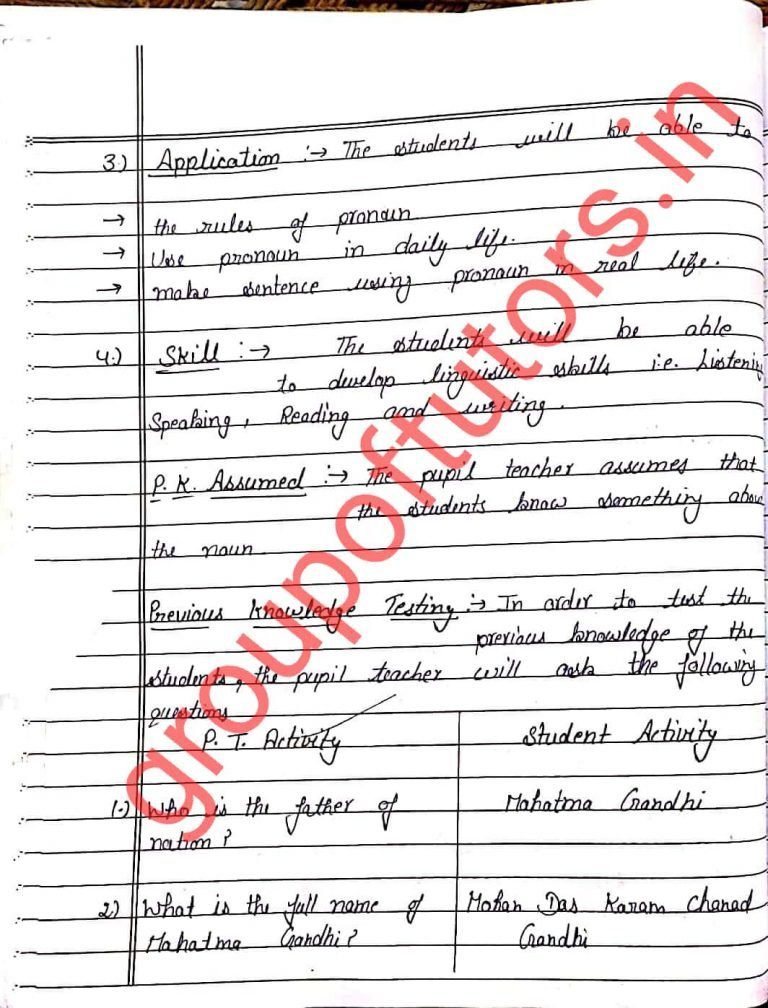 3.) Application :→ The students will be able to
→ the rules of pronoun
→ Use pronoun in daily life.
→ make sentence using pronoun in real life.
4.) Skill :→ The students will be able
to develop linguistic skills i.e. Listening
Speaking, Reading and writing.
P. K. Assumed :→ The pupil teacher assumes that
the students know something about
the noun
Previous knowledge Testing :→ In order to test the
previous knowledge of the
students, the pupil teacher will ask the following
questions
P. T. Activity Student Activity
1.) Who is the father of Mahatma Gandhi
nation?
2.) What is the full name of Mohan Das Karam Chanad
Mahatma Gandhi? Gandhi
groupoftutors.in